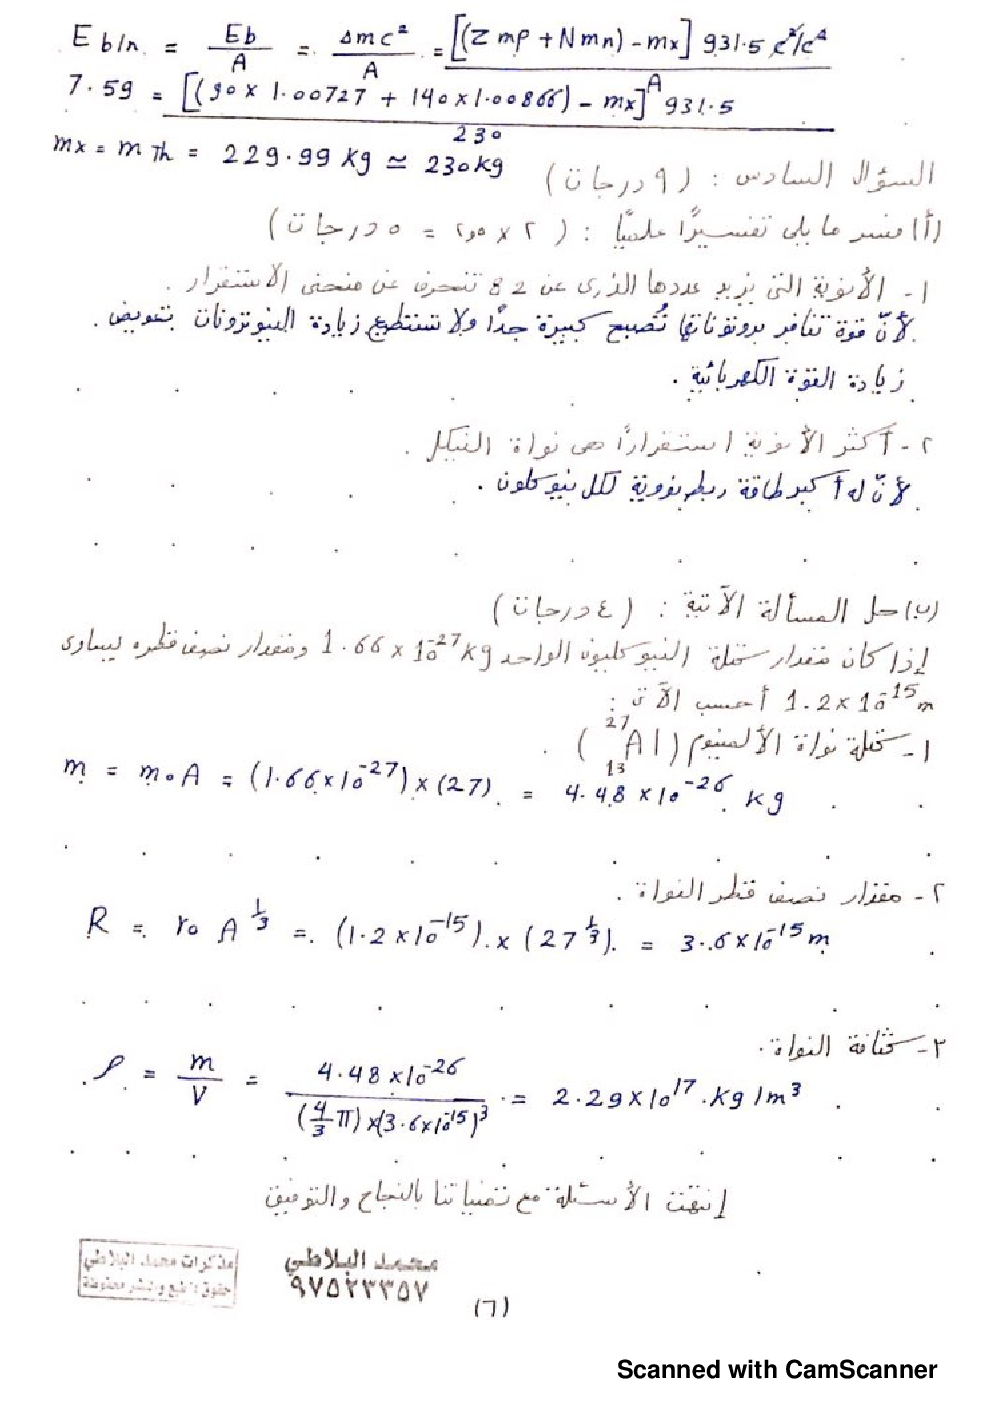 Eb/n = Eb/A = Δmc²/A = [(Z mp + N mn) - mx] 931.5 c²/c² / A
7.59 = [(90 x 1.00727 + 140 x 1.00866) - mx] 931.5 / 230
mx = m Th = 229.99 kg ≃ 230 kg
السؤال السادس : ( ٩ درجات )
(أ) فسر ما يلى تفسيرًا علميًّا : ( ٢ × ٢٫٥ = ٥ درجات )
١- الأنوية التى يزيد عددها الذرى عن 82 تنحرف عن منحنى الاستقرار .
لأنّ قوة تنافر بروتوناتها تُصبح كبيرة جدًا ولا تستطيع زيادة النيوترونات تعويض
زيادة القوة الكهربائية .
٢- أكثر الأنوية استقرارًا هى نواة النيكل .
لأنّ له أكبر طاقة ربط نووية لكل نيوكلون .
(ب) حل المسألة الآتية : ( ٤ درجات )
إذا كان مقدار كتلة النيوكليون الواحد 1.66 x 10⁻²⁷ kg ومقدار نصف قطره يساوى
1.2 x 10⁻¹⁵ m أحسب الآتى :
١- كتلة نواة الألمنيوم ( ²⁷₁₃Al ) .
m = m₀ A = (1.66x10⁻²⁷) x (27) = 4.48 x 10⁻²⁶ kg
٢- مقدار نصف قطر النواة .
R = r₀ A^⅓ = (1.2 x 10⁻¹⁵) x (27^⅓) = 3.6 x 10⁻¹⁵ m
٣- كثافة النواة .
ρ = m/V = 4.48 x 10⁻²⁶ / (4/3 π) x (3.6x10⁻¹⁵)³ = 2.29 x 10¹⁷ kg/m³
إنتهت الأسئلة مع تمنياتنا بالنجاح والتوفيق
محمد البلاطي
٩٧٥٢٣٣٥٧
مذكرات محمد البلاطي
حقوق الطبع والنشر محفوظة
(٦)
Scanned with CamScanner